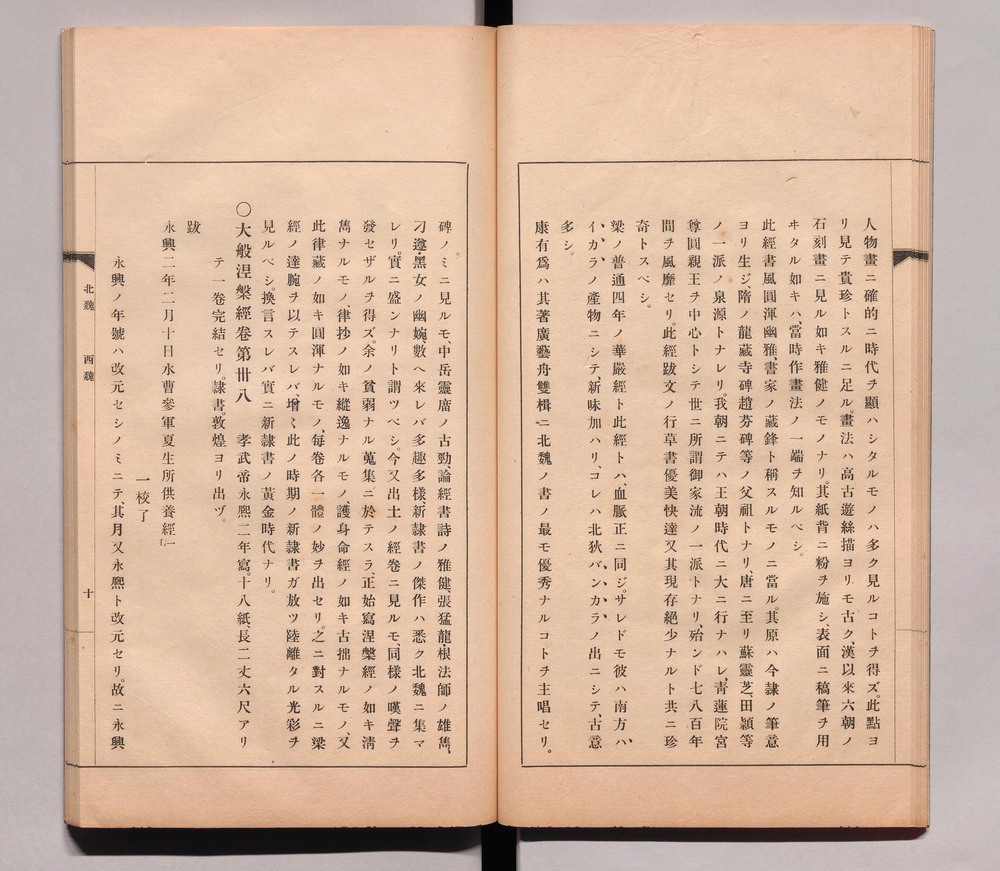 人物畫ニ確的ニ時代ヲ顯ハシタルモノハ多ク見ルコトヲ得ズ。此點ヨ
リ見テ貴珍トスルニ足ル。畫法ハ高古遊絲描ヨリモ古ク、漢以來六朝ノ
石刻畫ニ見ル如キ雅健ノモノナリ。其紙背ニ粉ヲ施シ、表面ニ稿筆ヲ用
ヰタル如キハ、當時作畫法ノ一端ヲ知ルベシ。
此經書風圓渾幽雅、書家ノ藏鋒ト稱スルモノニ當ル。其原ハ今隸ノ筆意
ヨリ生ジ、隋ノ龍藏寺碑趙芬碑等ノ父祖トナリ、唐ニ至リ蘇靈芝、田頴等
ノ一派ノ泉源トナレリ。我朝ニテハ王朝時代ニ大ニ行ナハレ、靑蓮院宮
尊圓親王ヲ中心トシテ世ニ所謂御家流ノ一派トナリ、殆ンド七八百年
間ヲ風靡セリ。此經跋文ノ行草書優美快達又其現存絕少ナルト共ニ珍
奇トスベシ。
梁ノ普通四年ノ華嚴經ト此經トハ、血脈正ニ同ジ。サレドモ彼ハ南方ハ、
イカラノ產物ニシテ、新味加ハリ、コレハ北狄バンカラノ出ニシテ古意
多シ。
康有爲ハ其著廣藝舟雙楫ニ北魏ノ書ノ最モ優秀ナルコトヲ主唱セリ。
碑ノミニ見ルモ、中岳靈廣ノ古勁、論經書詩ノ雅健、張猛龍根法師ノ雄雋、
刁遵黑女ノ幽婉、數ヘ來レバ多趣多樣、新隸書ノ傑作ハ悉ク北魏ニ集マ
レリ。實ニ盛ンナリト謂ツベシ。今又出土ノ經卷ニ見ルモ同樣ノ嘆聲ヲ
發セザルヲ得ズ。余ノ貧弱ナル蒐集ニ於テスラ、正始寫涅槃經ノ如キ淸
雋ナルモノ、律抄ノ如キ縱逸ナルモノ、護身命經ノ如キ古拙ナルモノ、又
此律藏ノ如キ圓渾ナルモノ、每卷各一體ノ妙ヲ出セリ。之ニ對スルニ梁
經ノ達腕ヲ以テスレバ、增〱此ノ時期ノ新隸書ガ放ツ陸離タル光彩ヲ
見ルベシ。換言スレバ實ニ新隸書ノ黃金時代ナリ。
〇大般涅槃經卷第卅八　孝武帝永熙二年寫。十八紙長二丈六尺アリ
テ一卷完結セリ。隸書。敦煌ヨリ出ヅ。
跋
永興二年二月十日水曹參軍夏生所供養經」
一校了
永興ノ年號ハ改元セシノミニテ、其月又永熙ト改元セリ。故ニ永興
北魏　西魏
十